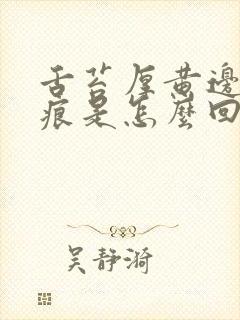 舌苔厚黄邊
痕是怎麼回
吴静漪